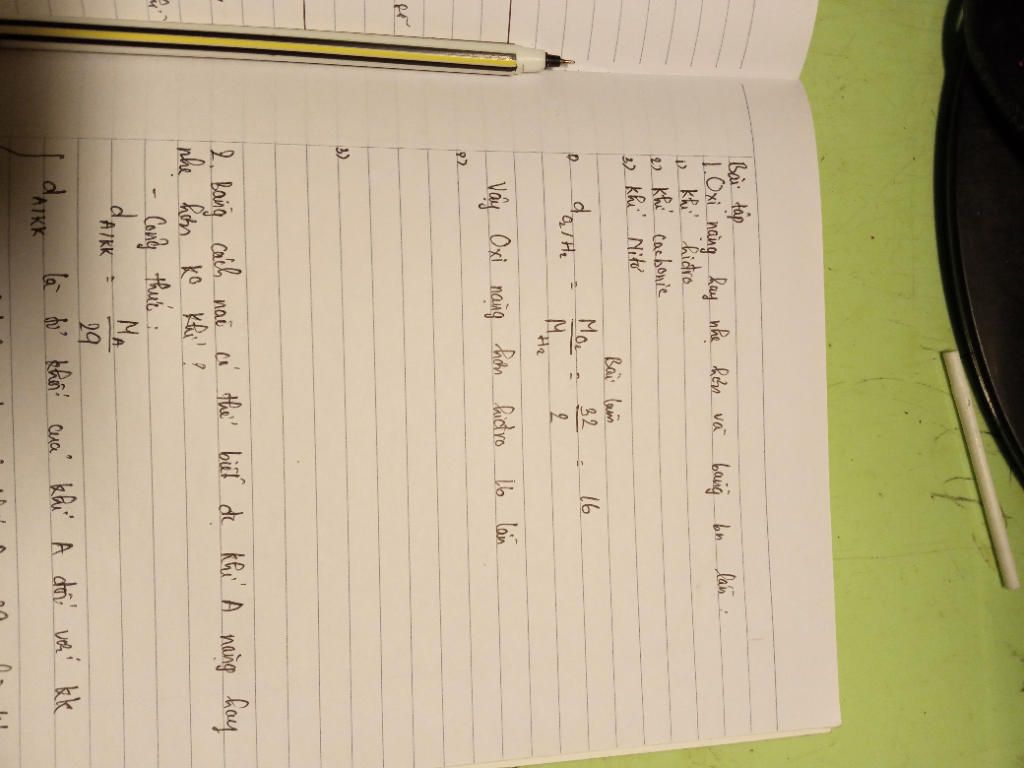 Bài tập
1. Oxi nặng hay nhẹ hơn và bằng bn lần:
1) Khí hidro
2) Khí cacbonic
3) Khí Nitơ
Bài làm
1) d O₂/H₂ = M O₂ / M H₂ = 32 / 2 = 16
Vậy Oxi nặng hơn hidro 16 lần
2)
3)
2. Bằng cách nào có thể biết đc khí A nặng hay
nhẹ hơn ko khí?
- Công thức:
d A/KK = M A / 29
d A/KK là tỉ khối của khí A đối với kk